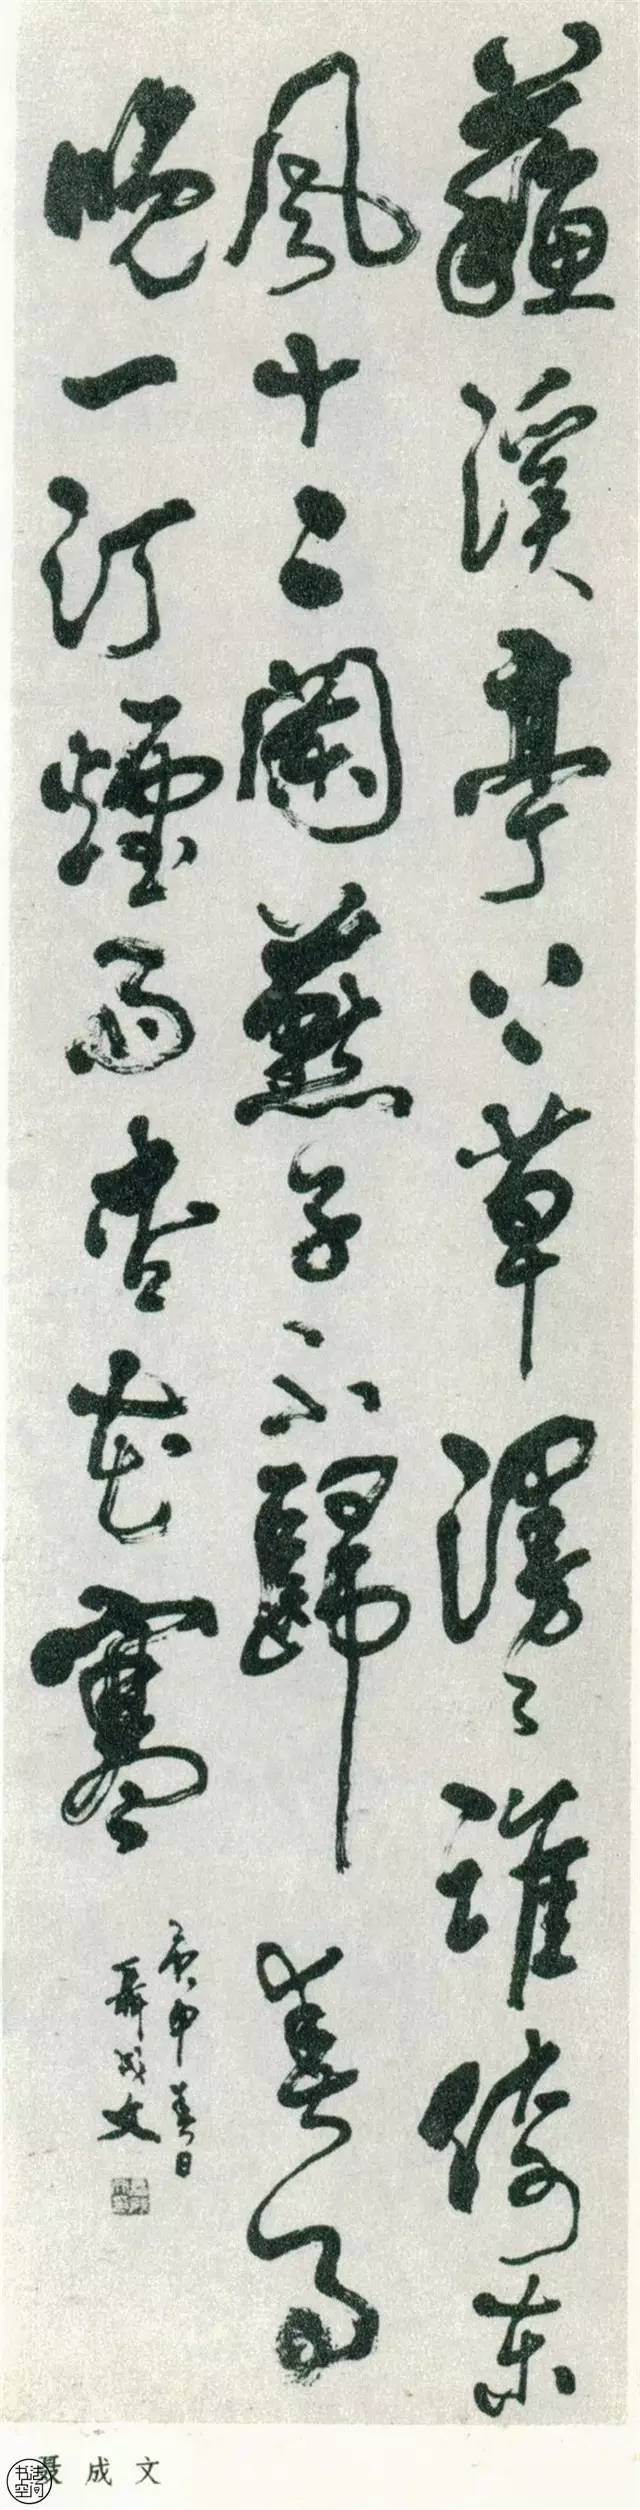 蘓溪亭上草漫々誰倚東
風十二闌燕子不歸春事
晚一汀煙雨杏花寒
庚申春日
聶成文
聂成文
书法空间